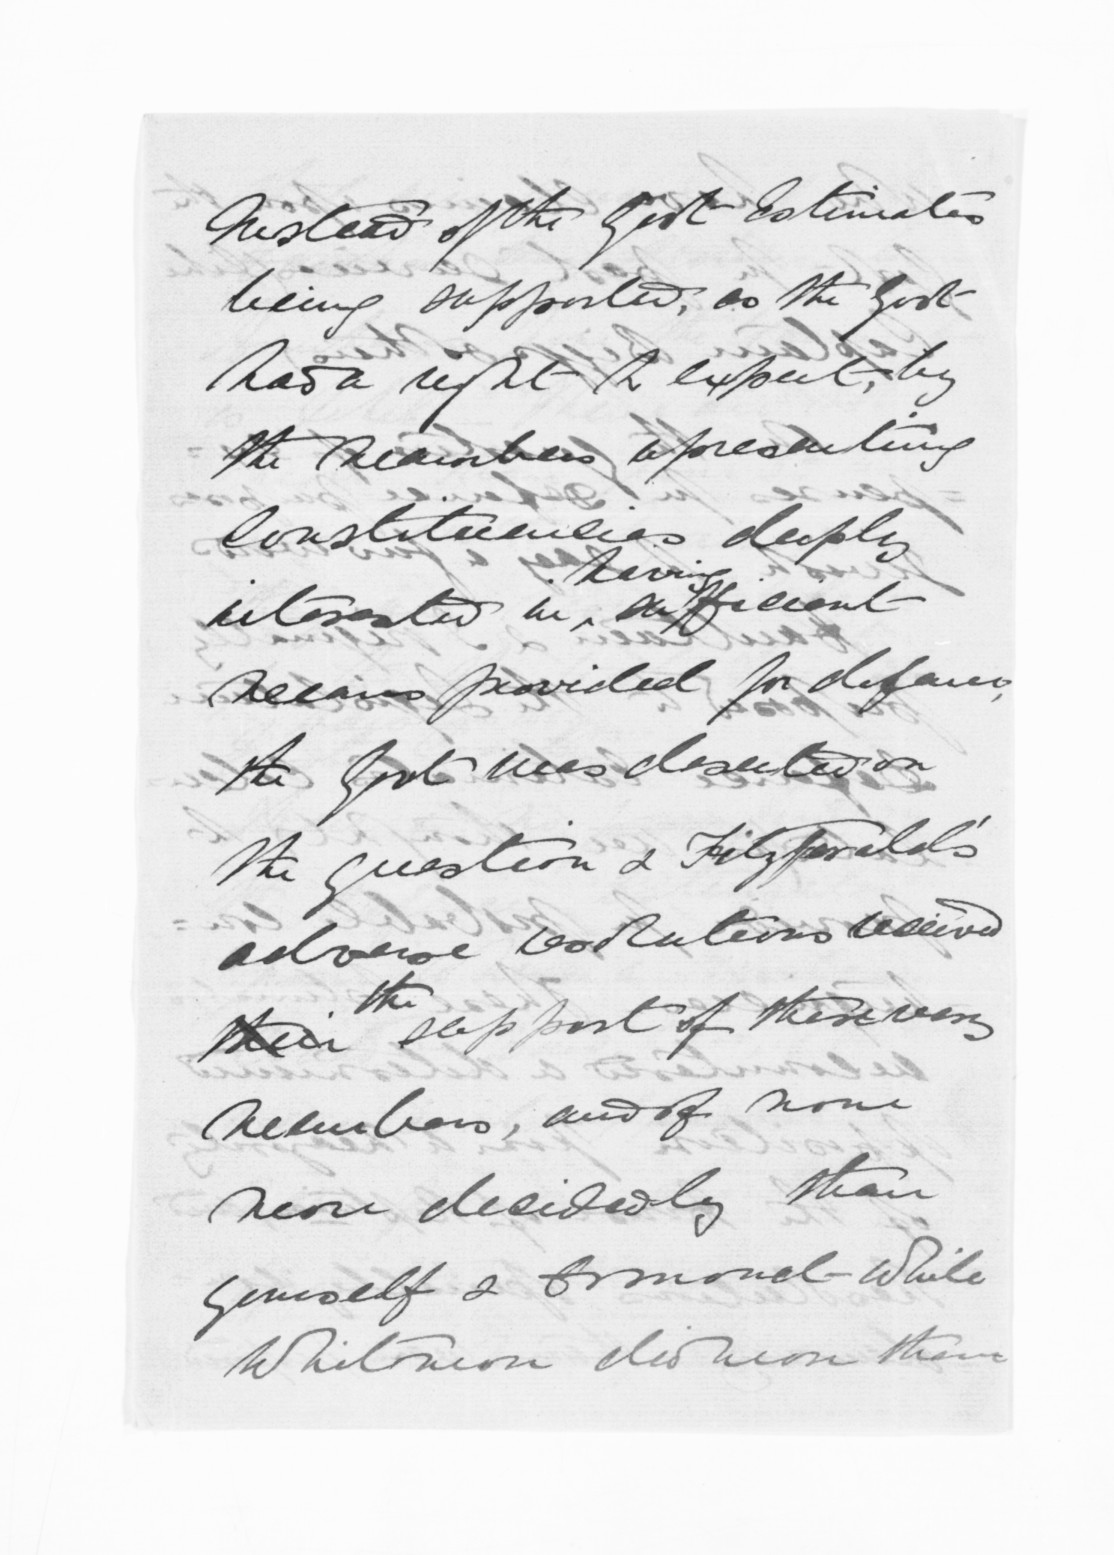 Instead of the Govt Estimates
being supported, as the Govt
had a right to expect, by
the members representing
constituencies deeply
interested in, having sufficient
means provided for defence,
the Govt was deserted on
the question & FitzGerald's
adverse resolutions received
their the support of these very
members, and of none
more decidedly than
yourself & Ormond – While
Whitmore did more than